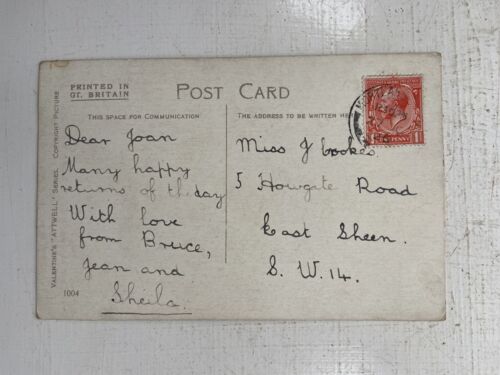 PRINTED IN
GT. BRITAIN
POST CARD
THIS SPACE FOR COMMUNICATION
THE ADDRESS TO BE WRITTEN HERE
VALENTINE'S "ATTWELL" SERIES. COPYRIGHT PICTURE
Dear Joan
Many happy
returns of the day
With love
from Bruce,
Jean and
Sheila.
1004
Miss J Cookes.
5 Howgate Road
East Sheen.
S. W. 14.
PENNY